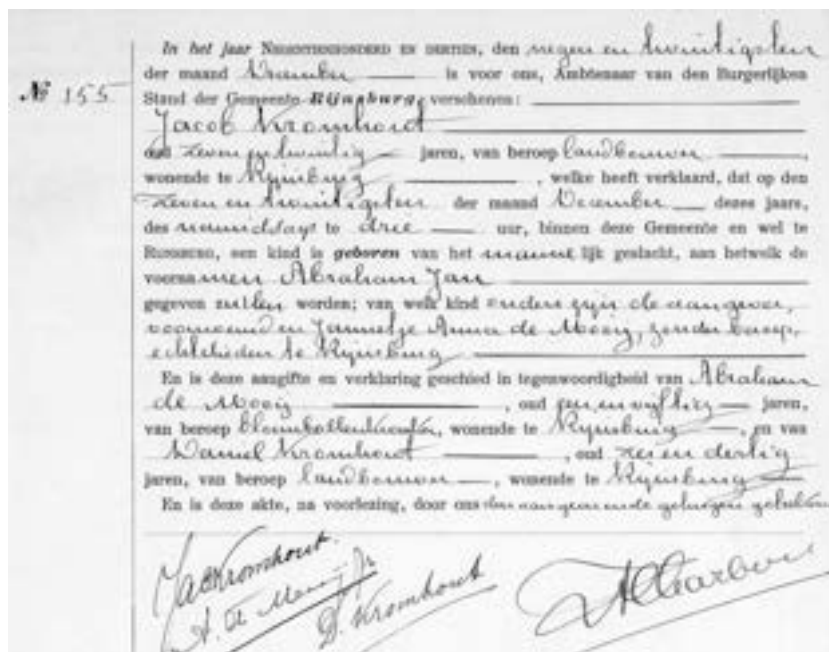 In het jaar NEGENTIENHONDERD EN DERTIEN, den negen en twintigsten
der maand December is voor ons, Ambtenaar van den Burgerlijken
№ 155
Stand der Gemeente Rijnsburg, verschenen:
Jacob Kromhout
oud zeven en twintig jaren, van beroep landbouwer,
wonende te Rijnsburg, welke heeft verklaard, dat op den
zeven en twintigsten der maand December dezes jaars,
des namiddags te drie uur, binnen deze Gemeente en wel te
RIJNSBURG, een kind is geboren van het mannelijk geslacht, aan hetwelk de
voornamen Abraham Jan
gegeven zullen worden; van welk kind ouders zijn de aangever,
voornoemd en Jannetje Anna de Mooij, zonder beroep,
echtelieden te Rijnsburg
En is deze aangifte en verklaring geschied in tegenwoordigheid van Abraham
de Mooij, oud en vijftig jaren,
van beroep bloembollenkweeker, wonende te Rijnsburg, en van
Daniel Kromhout, oud zes en dertig
jaren, van beroep landbouwer, wonende te Rijnsburg
En is deze akte, na voorlezing, door ons den aangever en de getuigen geteekend
Jac Kromhout.
A. de Mooij Jz
D. Kromhout